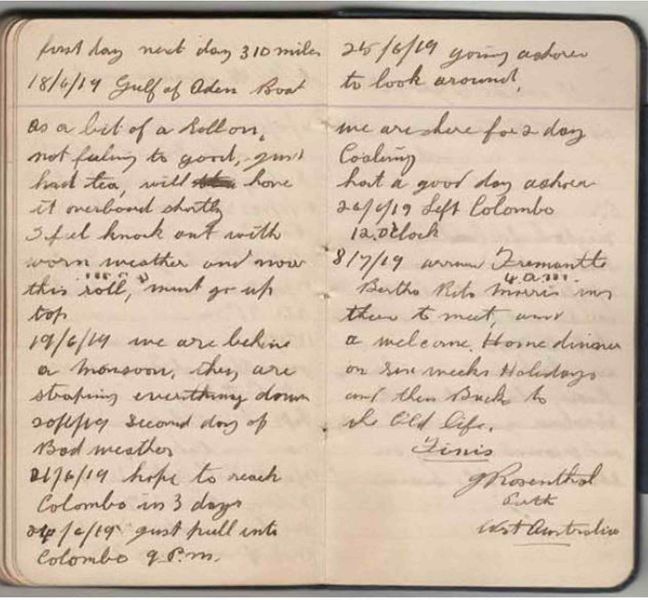 first day next day 310 miles
18/6/19 Gulf of Aden Boat
as a bit of a Roll on,
not feeling to good, just
had tea, will have
it overboard shortly
I feel knock out with
warm weather and now
this roll, must go up
top
19/6/19 we are behine
a monsoon, they are
straping everything down
20/6/19 second day of
Bad weather
21/6/19 hope to reach
Colombo in 3 days
24/6/19 just pull into
Colombo 9 P.m.
25/6/19 going ashore
to look around,
we are here for 2 day
Coaling
had a good day ashore
26/6/19 Left Colombo
12.oClock
8/7/19 arrive Fremantle
4 a.m.
Bertha Morris
there to meet, and
a welcome Home dinner
on six weeks Holidays
and then Back to
the Old life.
Finis
J Rosenthal
Perth
West Australia